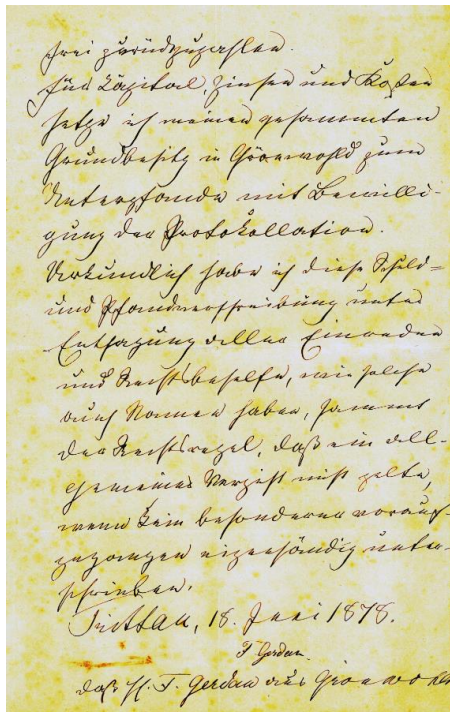 frei zurückzuzahlen.
Für Capital, Zinsen und Kosten
setze ich meinen gesammten
Grundbesitz in Grönwohld zum
Unterpfande mit Bewilli-
gung der Protokollation.
Urkundlich habe ich diese Schuld-
und Pfandverschreibung unter
Entsagung aller Einreden
und Rechtsbehelfe, wie solche
auch Namen haben, sammt
der Rechtsregel, daß ein all-
gemeiner Verzicht nicht gelte,
wenn kein besonderer voraus-
gegangen eigenhändig unter-
schrieben.
Trittau, 18. Juni 1878.
Gerdau
daß H. J. Gerdau aus Grönwohld